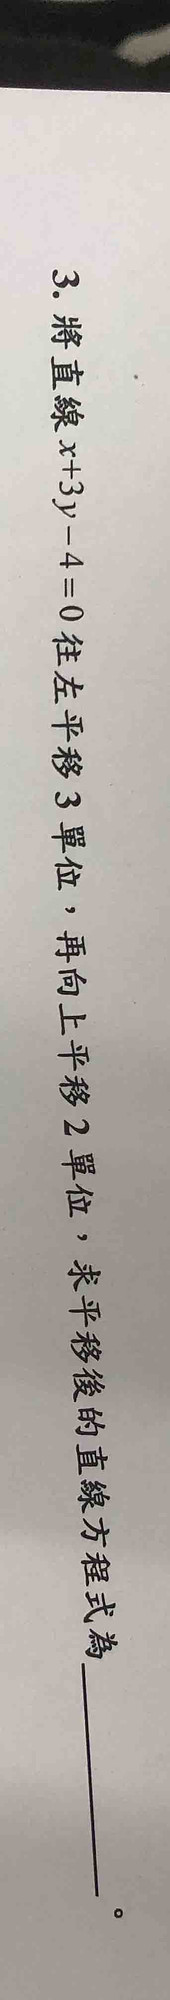 3. 將直線 x+3y-4=0 往左平移 3 單位，再向上平移 2 單位，求平移後的直線方程式為＿＿＿＿＿。